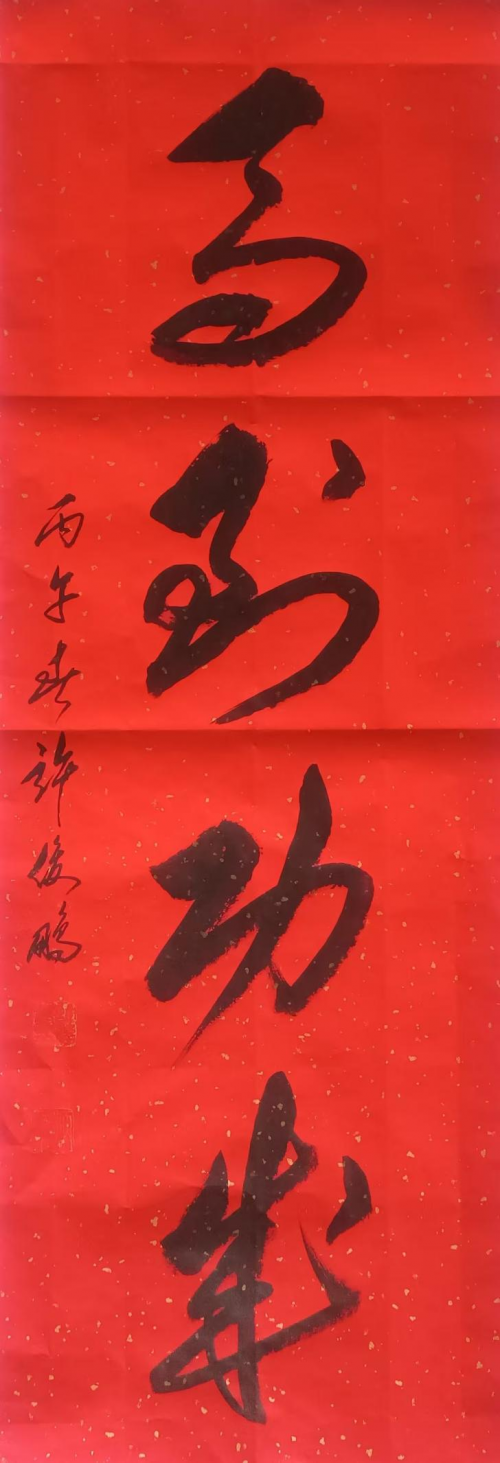 马到功成
丙午春许俊鹏